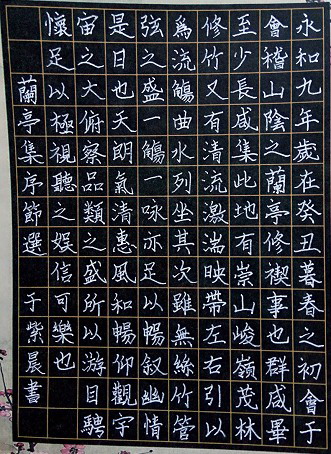 永和九年歲在癸丑暮春之初會于
會稽山陰之蘭亭修禊事也群咸畢
至少長咸集此地有崇山峻嶺茂林
修竹又有清流激湍映帶左右引以
爲流觴曲水列坐其次雖無絲竹管
弦之盛一觴一咏亦足以暢叙幽情
是日也天朗氣清惠風和暢仰觀宇
宙之大俯察品類之盛所以游目騁
懷足以極視聽之娱信可樂也
蘭亭集序節選 于紫晨書